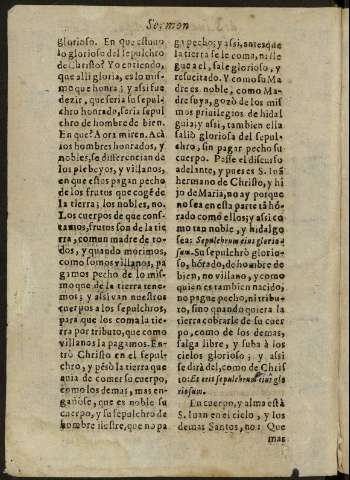 Sermon
glorioso. En que estuuo
lo glorioso del sepulchro
de Christo? Yo entiendo,
que alli gloria, es lo mis-
mo que honra; y assi fue
dezir, que seria su sepul-
chro honrado, seria sepul
chro de hombre de bien.
En que? Aora miren. Acà
los hombres honrados, y
nobles, se differencian de
los plebeyos, y villanos,
en que estos pagan pecho
de los frutos que coge de
la tierra; los nobles, no.
Los cuerpos de que cons-
tamos, frutos son de la tie
rra, comun madre de to-
dos, y quando morimos,
como somos villanos, pa
gamos pecho de lo mis-
mo que de la tierra tene-
mos; y assi van nuestros
cuerpos a los sepulchros,
para que los coma la tie-
rra por tributo, que como
villanos la pagamos. En-
trò Christo en el sepul-
chro, y pêsò la tierra que
auia de comer su cuerpo,
como los demas, mas en-
gañose, que es noble su
cuerpo, y su sepulchro de
hombre ilustre, que no pa
ga pecho; y assi, antes que
la tierra se le coma, ni lle
gue a el, sale glorioso, y
resucitado. Y como su Ma
dre es noble, como Ma-
dre suya, gozò de los mis
mos priuilegios de hidal
guia; y assi, tambien ella
saliò gloriosa del sepul-
chro, sin pagar pecho su
cuerpo. Passe el discurso
adelante, y pues es S. Iuã
hermano de Christo, y hi
jo de Maria, no ay porque
no sea en esta parte tã hõ-
rado como ellos; y assi co
mo tan noble, y hidalgo
sea: Sepulchrum eius glorio-
sum. Su sepulchro glorio-
so, hõrado, de hombre de
bien, no villano, y como
quien es tambien nacido,
no pague pecho, ni tribu-
to, sino quando quiera la
tierra cobrarle de su cuer
po, como de los demas,
salga libre, y suba à los
cielos glorioso; y assi
se dirà del, como de Chris
to: Et erit sepulchrum eius glo
riosum.
En cuerpo, y alma està
S. Iuan en el cielo, y los
demas Santos, no: Que
mas